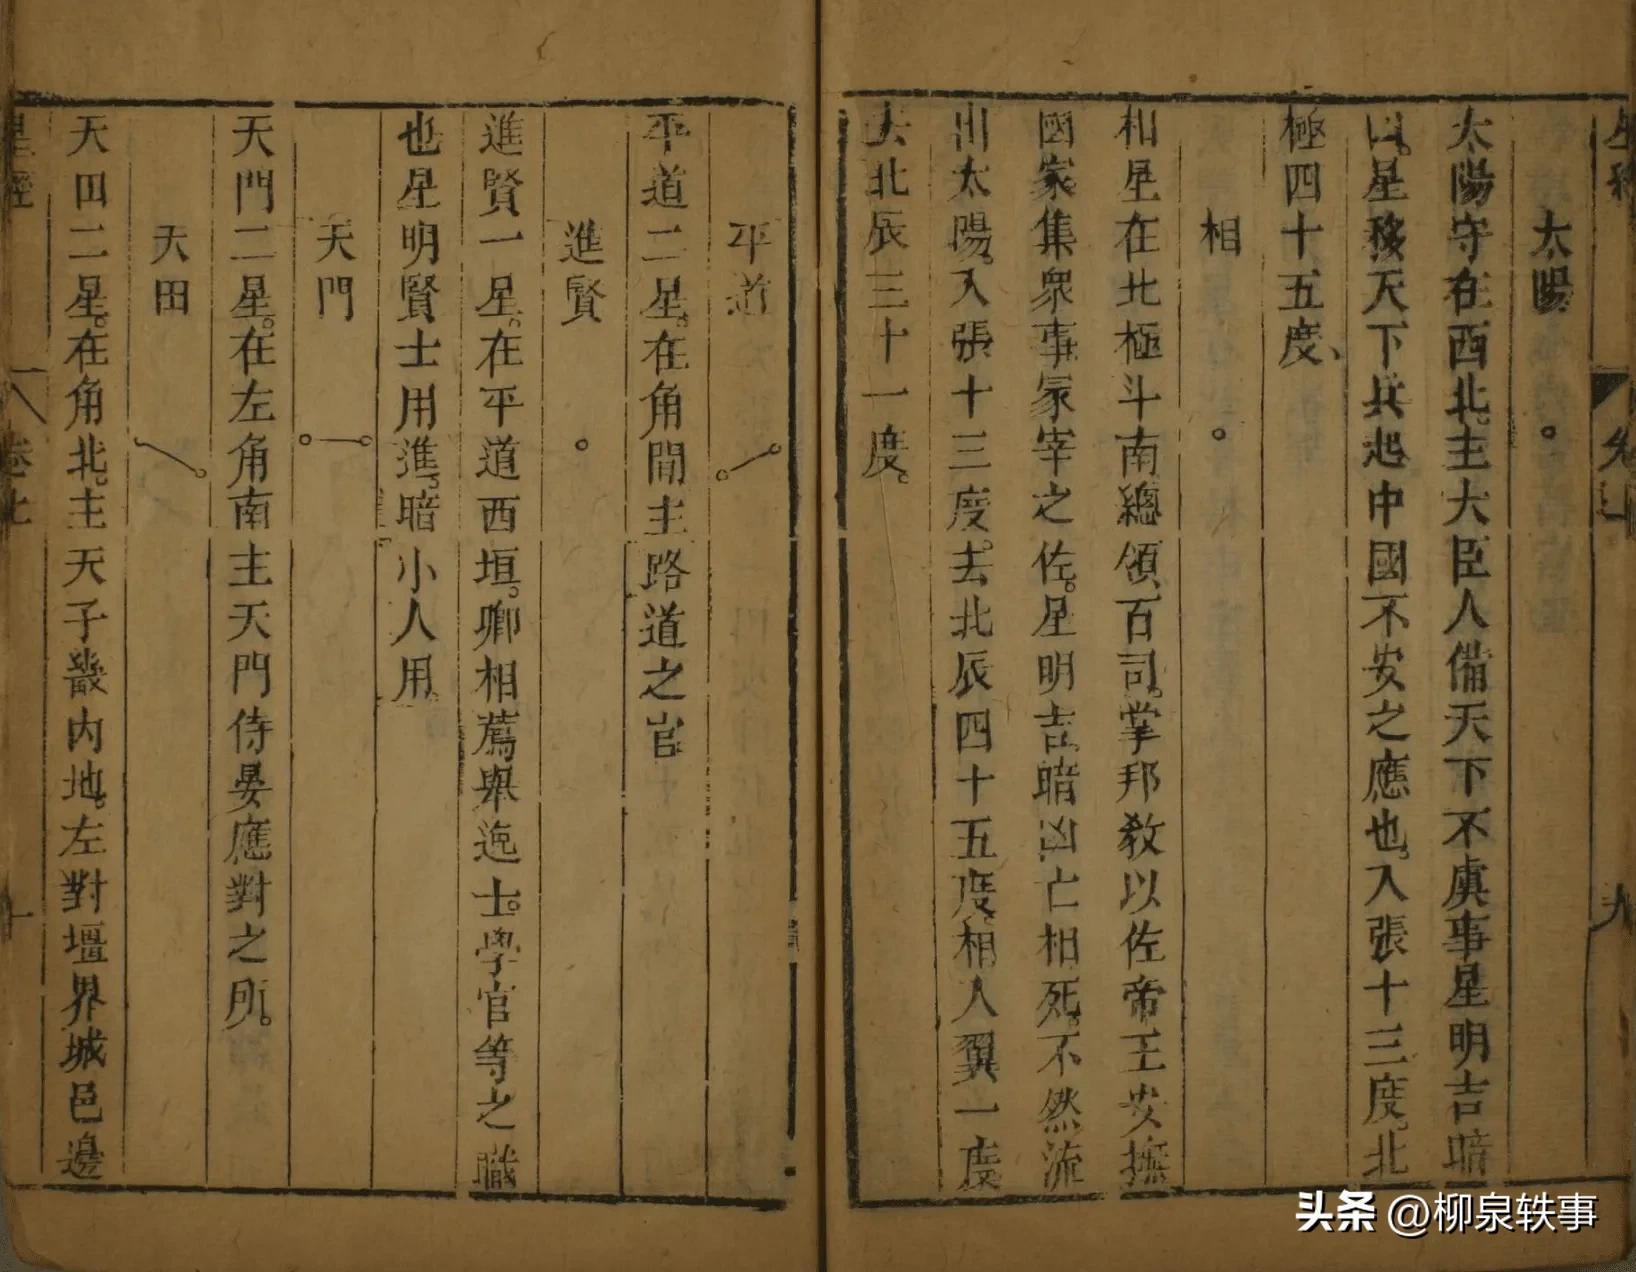 太陽
太陽守在西北。主大臣人備天下不虞事星明吉暗
凶。星移天下兵起中國不安之應也。入張十三度。北
極四十五度、
相
相星在北極斗南總領百司。掌邦教以佐帝王安撫
國家集衆事冢宰之佐。星明吉暗凶亡相死。不然流
出太陽。入張十三度。去北辰四十五度。相入翼一度
去北辰三十一度。
平道
平道二星。在角間主路道之官
進賢
進賢一星。在平道西垣。卿相薦舉逸士。學官等之職
也星明賢士用進。暗小人用。
天門
天門二星。在左角南主天門侍晏應對之所。
天田
天田二星。在角北。主天子畿内地。左對壃界城邑邊
星經
卷上
十
头条 @柳泉轶事